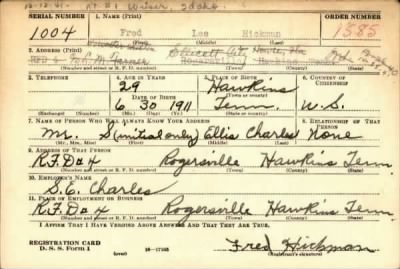 12-12-41- Rt #1 Weiser, Idaho
SERIAL NUMBER 1. NAME (Print) ORDER NUMBER
1004 Fred Lee Hickman 1585
2. ADDRESS (Print)
RFD 4
(Number and street or R. F. D. number) (Town) (County) (State)
3. TELEPHONE 4. AGE IN YEARS 5. PLACE OF BIRTH 6. COUNTRY OF CITIZENSHIP
29 Hawkins
DATE OF BIRTH (Town or county)
6 30 1911 Tenn. U.S.
(Exchange) (Number) (Mo.) (Day) (Yr.) (State or country)
7. NAME OF PERSON WHO WILL ALWAYS KNOW YOUR ADDRESS 8. RELATIONSHIP OF THAT PERSON
Mr. S (initial only) Ellis Charles None
9. ADDRESS OF THAT PERSON
R.F.D #4 Rogersville Hawkins Tenn.
(Number and street or R. F. D. number) (Town) (County) (State)
10. EMPLOYER'S NAME
S.E. Charles
11. PLACE OF EMPLOYMENT OR BUSINESS
R.F.D #4 Rogersville Hawkins Tenn.
(Number and street or R. F. D. number) (Town) (County) (State)
I AFFIRM THAT I HAVE VERIFIED ABOVE ANSWERS AND THAT THEY ARE TRUE.
REGISTRATION CARD
D. S. S. Form 1 16-17105 Fred Hickman